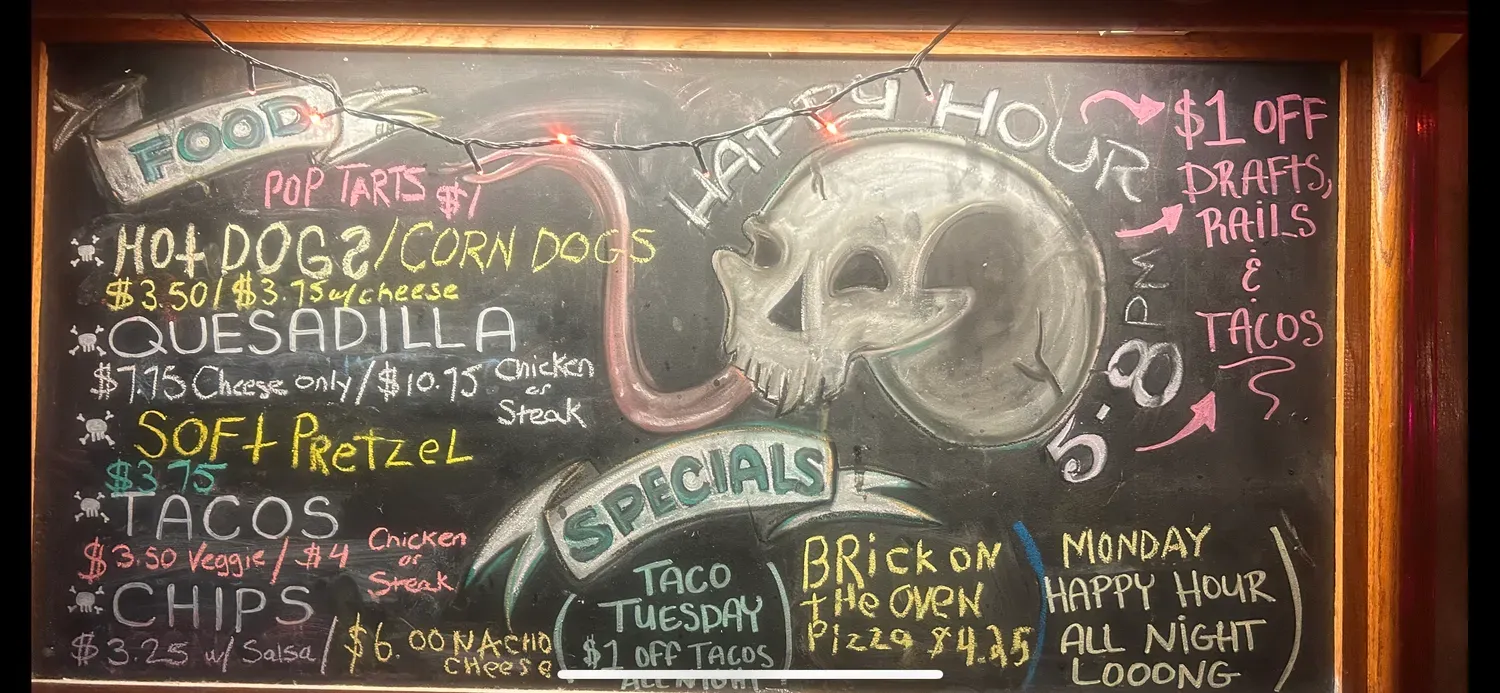 FOOD
POP TARTS $1
HOT DOGS/CORN DOGS
$3.50/$3.75 w/cheese
QUESADILLA
$7.75 Cheese only/$10.75 Chicken
or
Steak
SOFT PRETZEL
$3.75
TACOS
$3.50 Veggie/$4 Chicken
or
Steak
CHIPS
$3.25 w/ Salsa/$6.00 NACHO
CHEESE
HAPPY HOUR
5-8 PM
$1 OFF
DRAFTS,
RAILS
&
TACOS
SPECIALS
TACO
TUESDAY
$1 OFF TACOS
ALL NIGHT
BRICK ON
THE OVEN
PIZZA $4.25
MONDAY
HAPPY HOUR
ALL NIGHT
LOOONG